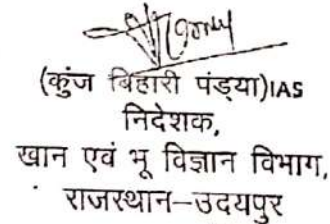 (कुंज बिहारी पंड्या)IAS
निदेशक,
खान एवं भू विज्ञान विभाग,
राजस्थान–उदयपुर